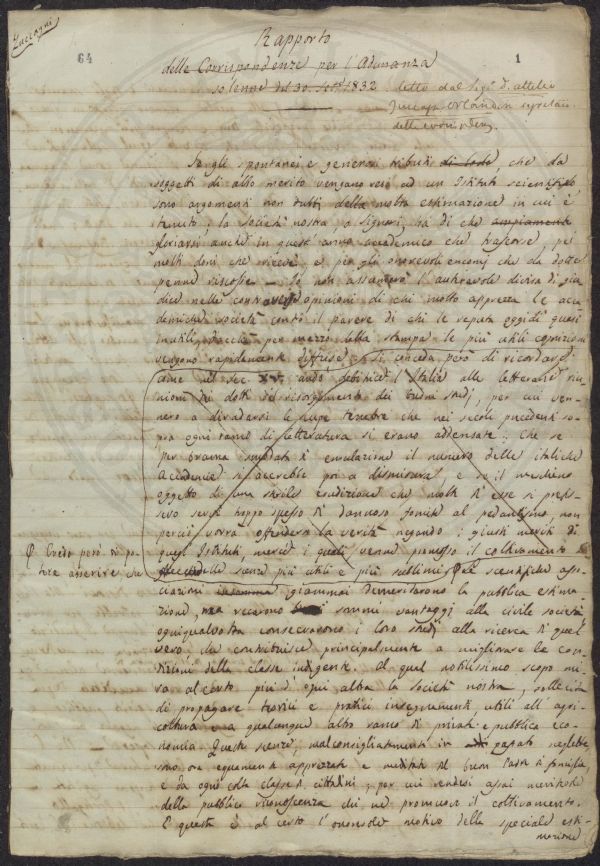 Zuccagni
64
1
Rapporto
delle Corrispondenze per l'Adunanza
solenne del 30. Sett. 1832. letto dal Sig. D. Attilio
segretario
delle corrispondenze
Se gli spontanei e generosi tributi di lode, che da
soggetti di alto merito vengano resi ad un Istituto scientifico
sono argomenti non dubbi della molta estimazione in cui è
tenuto, la Società nostra, o Signori, ha di che ampiamente
gloriarsi anche in quest'anno accademico che trascorse, pei
molti doni che ricevè, e per gli onorevoli encomj che da dotte
penne riscosse. Io non assumerò l'autorevole divisa di giu-
dice nelle controverse opinioni di chi molto apprezza le acca-
demiche società contro il parere di chi le reputa oggidì quasi
inutili, dacchè per mezzo della stampa le più utili cognizioni
vengono rapidamente diffuse. Mi si conceda però di ricordare
come nel sec. XV. andò debitrice l'Italia alle letterarie riu-
nioni dei dotti del risorgimento dei buoni studj, per cui ven-
nero a diradarsi le cupe tenebre che nei secoli precedenti so-
pra ogni ramo di letteratura si erano addensate: Che se
per brama smodata di emulazione il numero delle italiche
Accademie si accrebbe poi a dismisura, e se il meschino
oggetto di una sterile erudizione che molte di esse si prefis-
sero servì troppo spesso di dannoso fomite al pedantismo, non
perciò vorrà offendersi la verità negando i giusti meriti di
quegli Istituti, mercè i quali venne promosso il coltivamento
delle scienze più utili e più sublimi. Le scientifiche asso-
Credo però di po-
tere asserire che
ciazioni giammai demeritarono la pubblica estima-
zione, ma recarono sommi vantaggi alla civile società
ogniqualvolta consecrarono i loro studj alla ricerca di quel
vero, che contribuisce principalmente a migliorare le con-
dizioni della classe indigente. Al qual nobilissimo scopo mi-
ra al certo più d'ogni altra la Società nostra, sollecita
di propagare teorici e pratici insegnamenti utili all'agri-
coltura e a qualunque altro ramo di privata e pubblica eco-
nomia. Queste scienze, malconsigliatamente in passato neglette,
sono ora egualmente apprezzate e meditate dal buon Padre di famiglia
e da ogni colta classe di cittadini, per cui rendesi assai meritevole
della pubblica riconoscenza chi ne promuove il coltivamento.
E questo è al certo l'onorevole motivo della speciale esti-
mazione